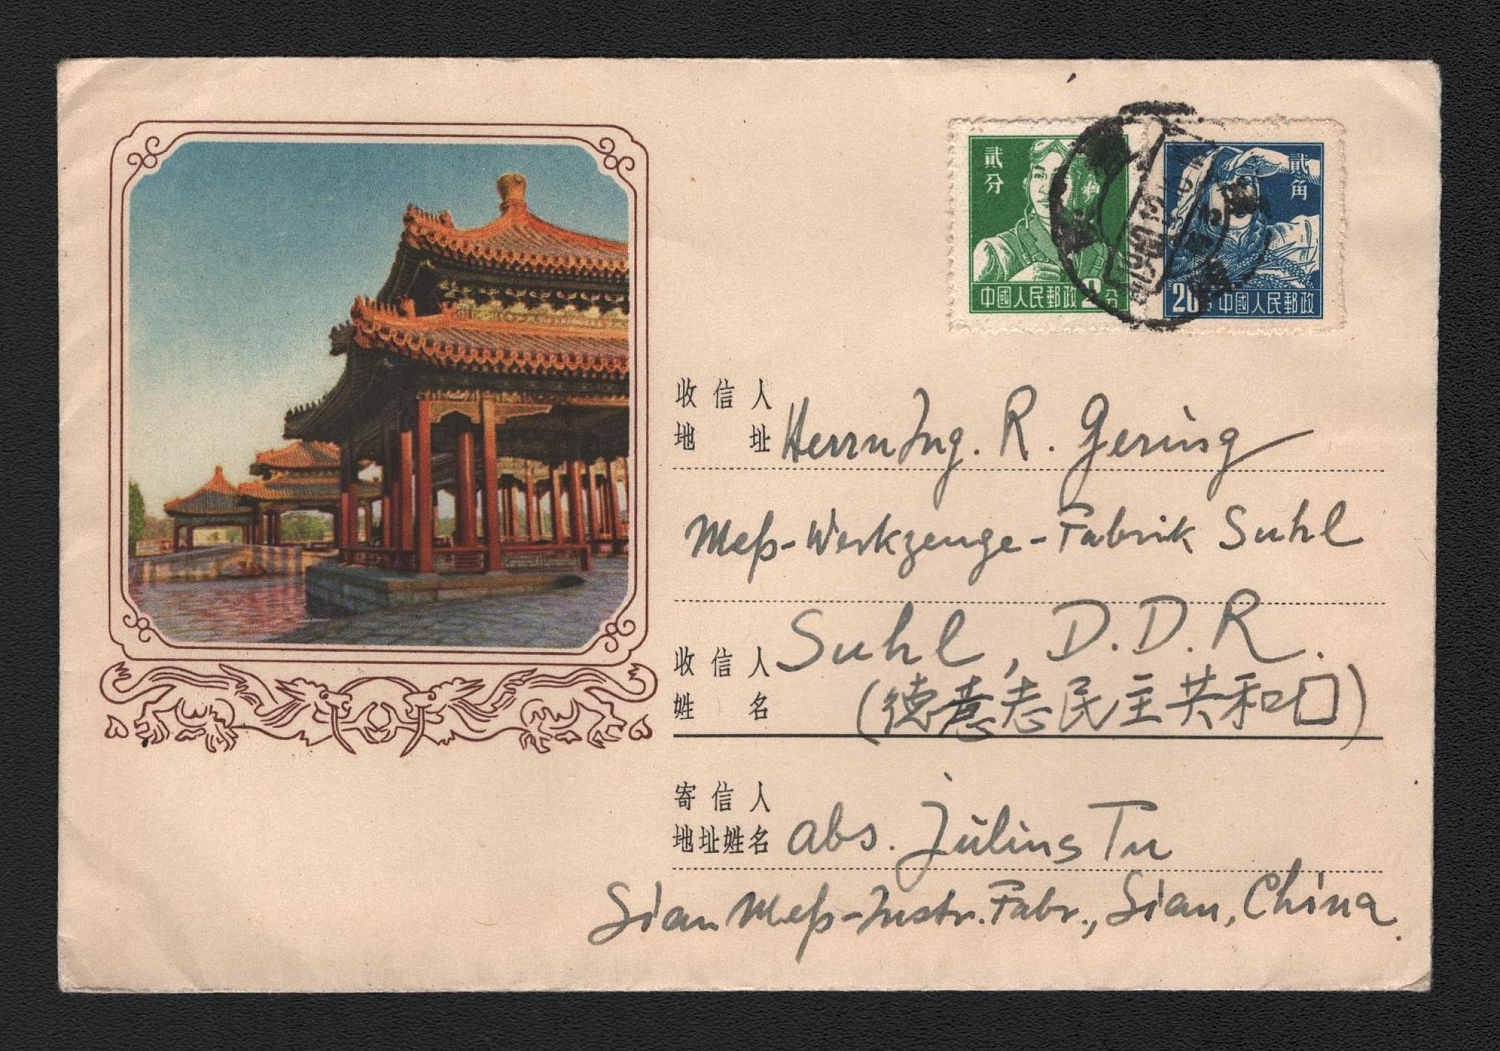 贰分
贰角
中國人民郵政 2分
20分 中國人民郵政
收信人
地址 Herrn Ing. R. Gering
Meß-Werkzeuge-Fabrik Suhl
收信人 Suhl, D.D.R.
姓名 (德意志民主共和囗)
寄信人
地址姓名 abs. Julius Tu
Sian Meß-Instr. Fabr., Sian, China.